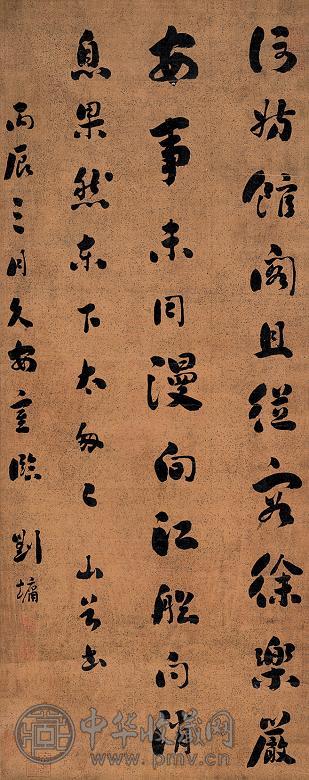 何妨館閣且從容徐樂嚴
安事未同漫向江船問消
息果然東下太匆匆 山谷書
丙辰三月久安室臨 劉墉
中华收藏网
www.pmv.cn